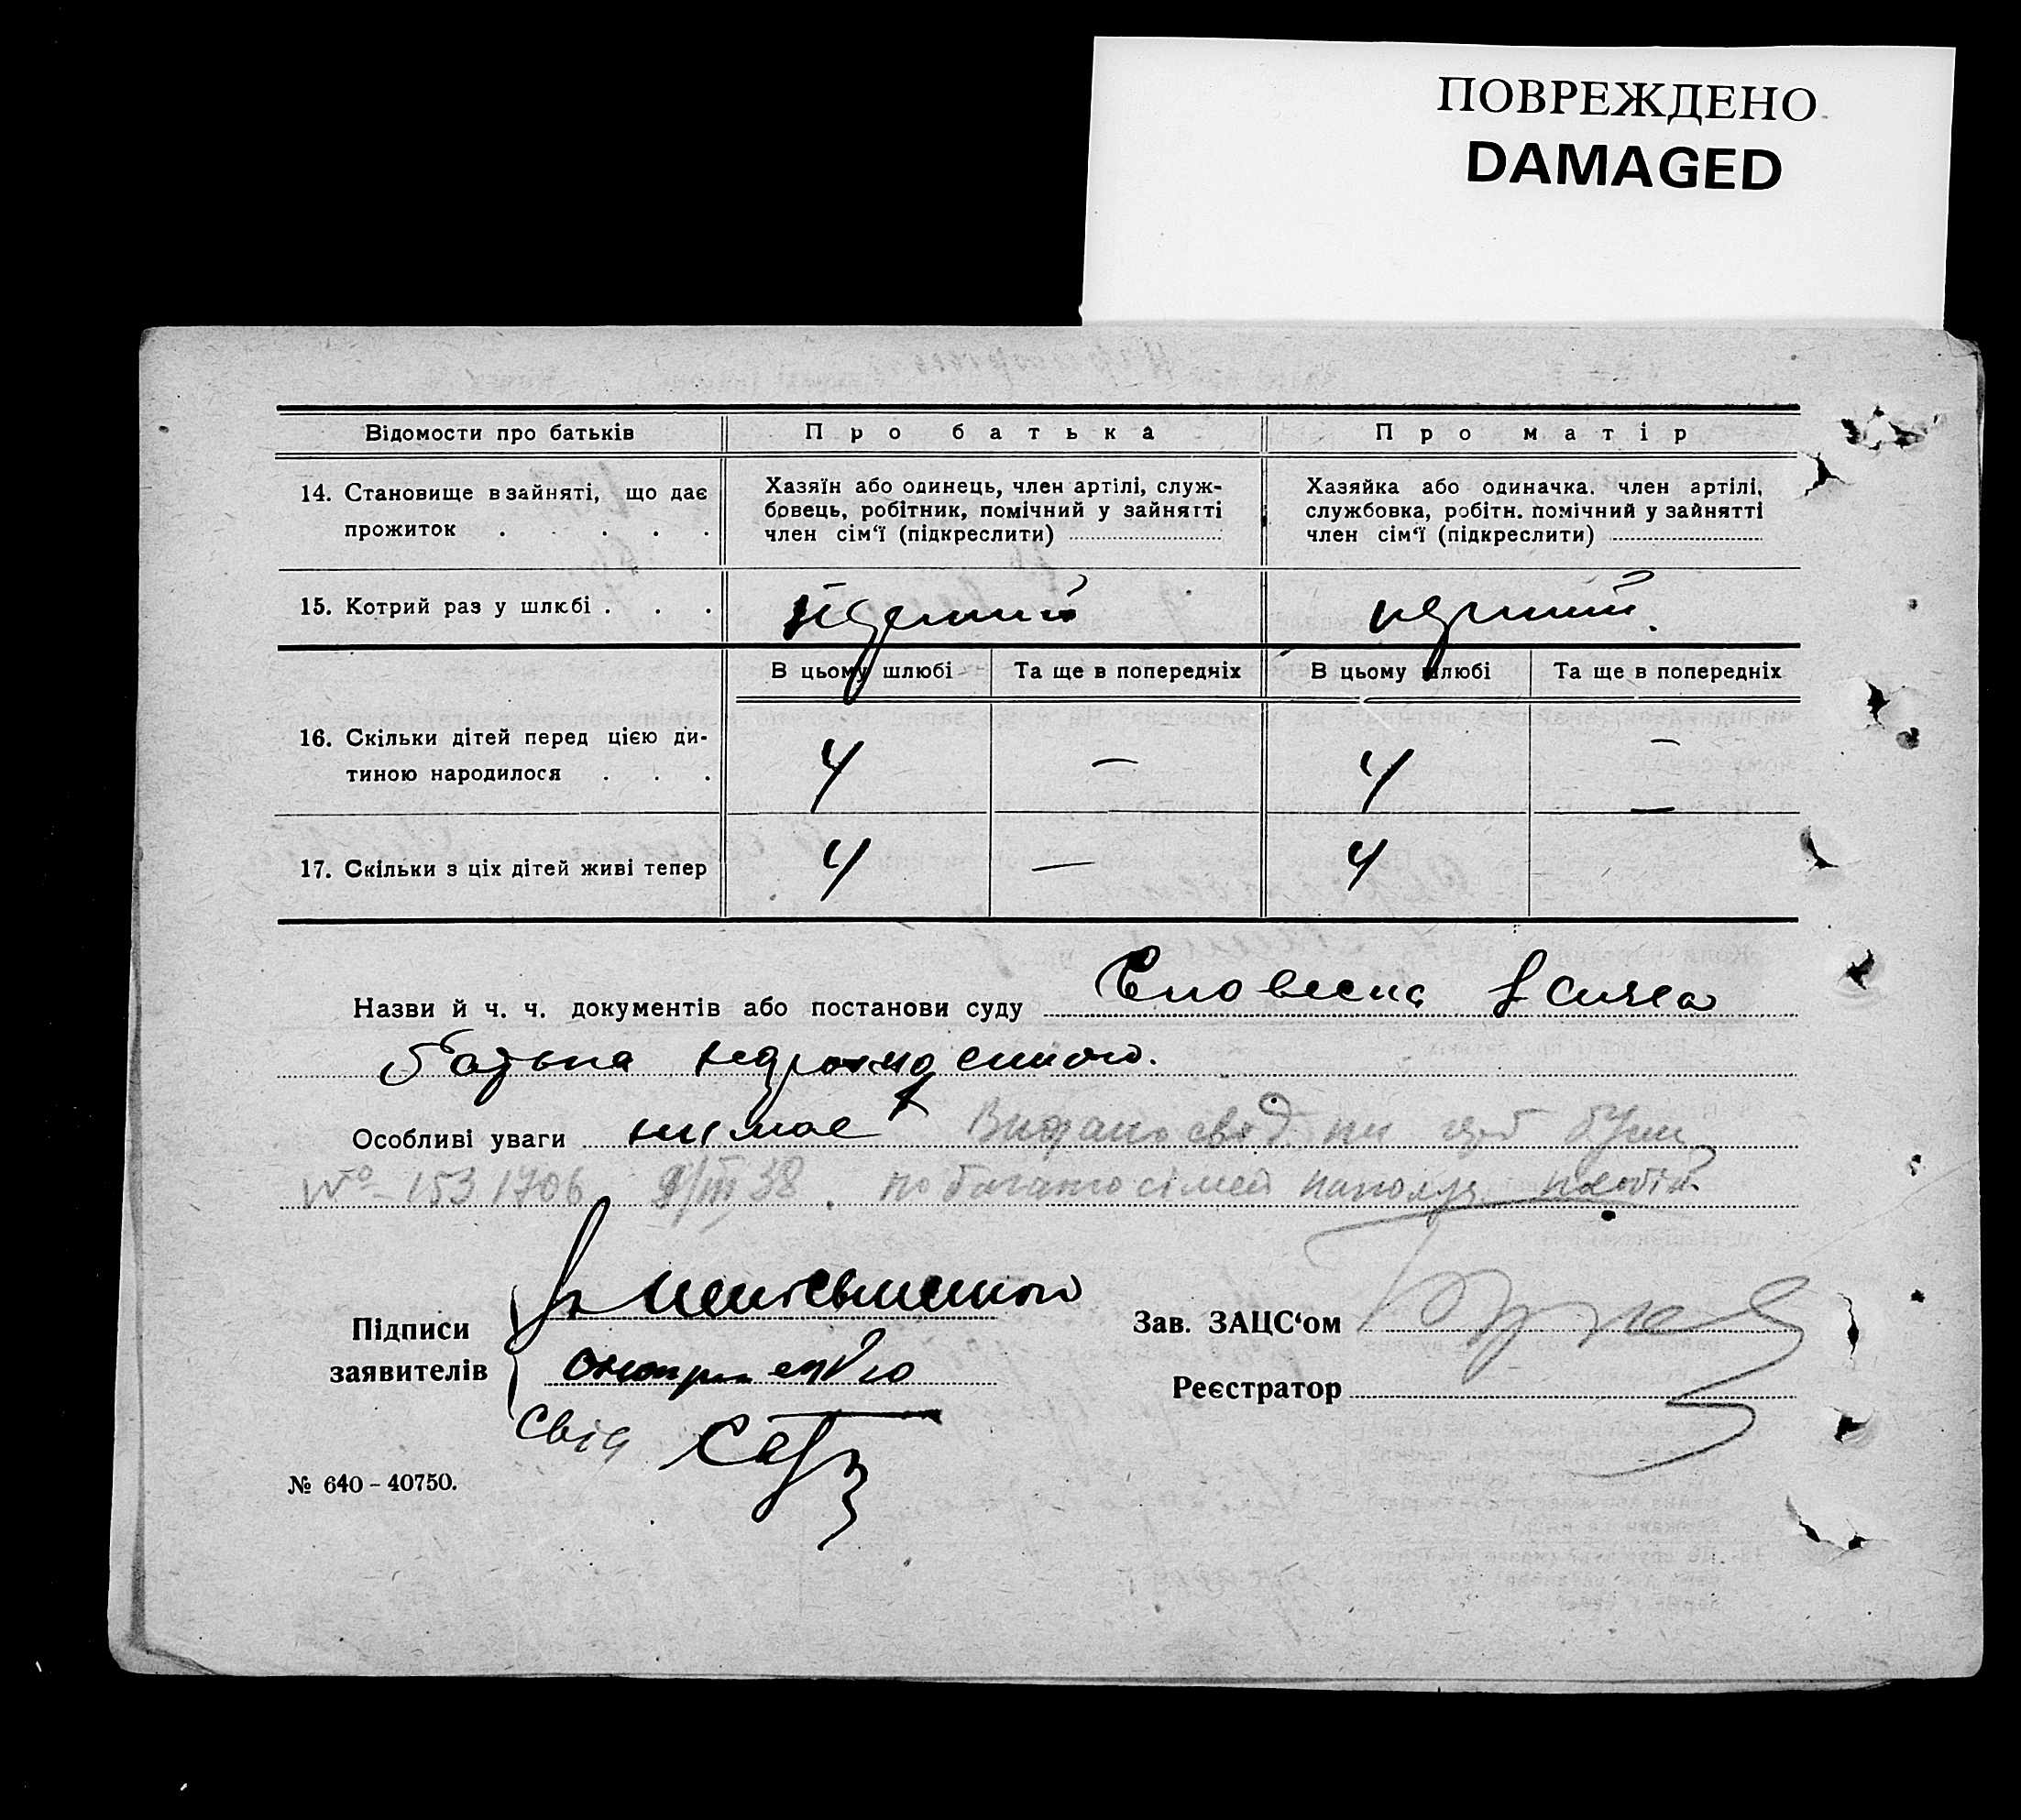 ПОВРЕЖДЕНО
DAMAGED
Відомости про батьків Про батька Про матір
14. Становище в зайняті, що дає прожиток . . . .
Хазяїн або одинець, член артілі, служ-
бовець, робітник, помічний у зайнятті
член сім‘ї (підкреслити)
Хазяйка або одиначка. член артілі,
службовка, робітн. помічний у зайнятті
член сім‘ї (підкреслити)
15. Котрий раз у шлюбі . . . перший перший.
В цьому шлюбі Та ще в попередніх В цьому шлюбі Та ще в попередніх
16. Скільки дітей перед цією ди-
тиною народилося . . . 4 — 4 —
17. Скільки з ціх дітей живі тепер 4 — 4 —
Назви й ч. ч. документів або постанови суду Словесна
батька
Особливі уваги немає Видано свід.
№ 1531706 9/III 38.
Підписи
заявителів
Свід
Зав. ЗАЦС‘ом
Реєстратор
№ 640-40750.